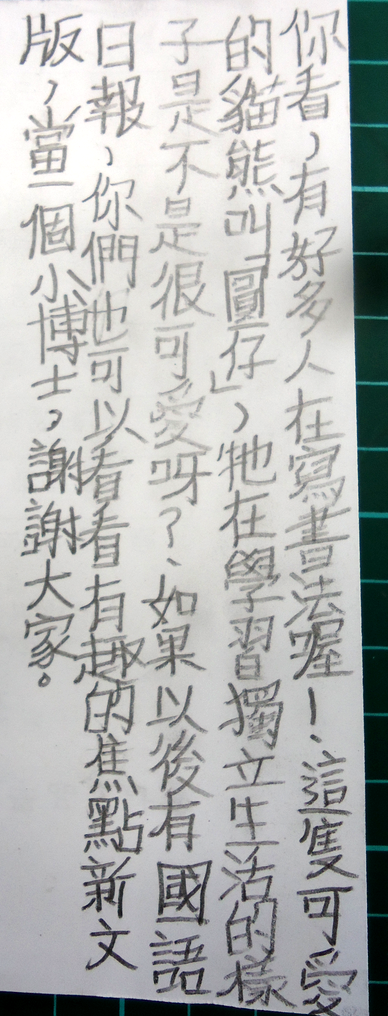 你看,有好多人在寫書法喔!這隻可愛
的貓熊叫「圓仔」,牠在學習獨立生活的樣
子是不是很可愛呀?如果以後有國語
日報,你們也可以看看有趣的焦點新文
版,當一個小博士,謝謝大家。